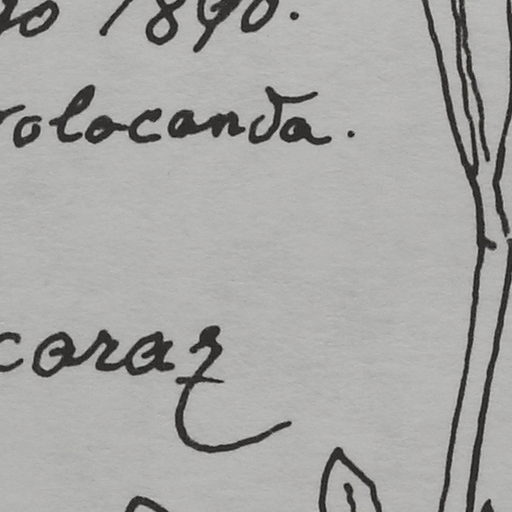 yo 1890.
rolocanda.
caraz